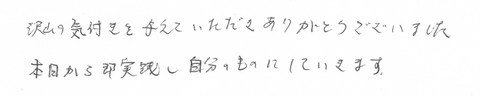 沢山の気付きを与えていただきありがとうございました
本日から即実践し自分のものにしていきます。